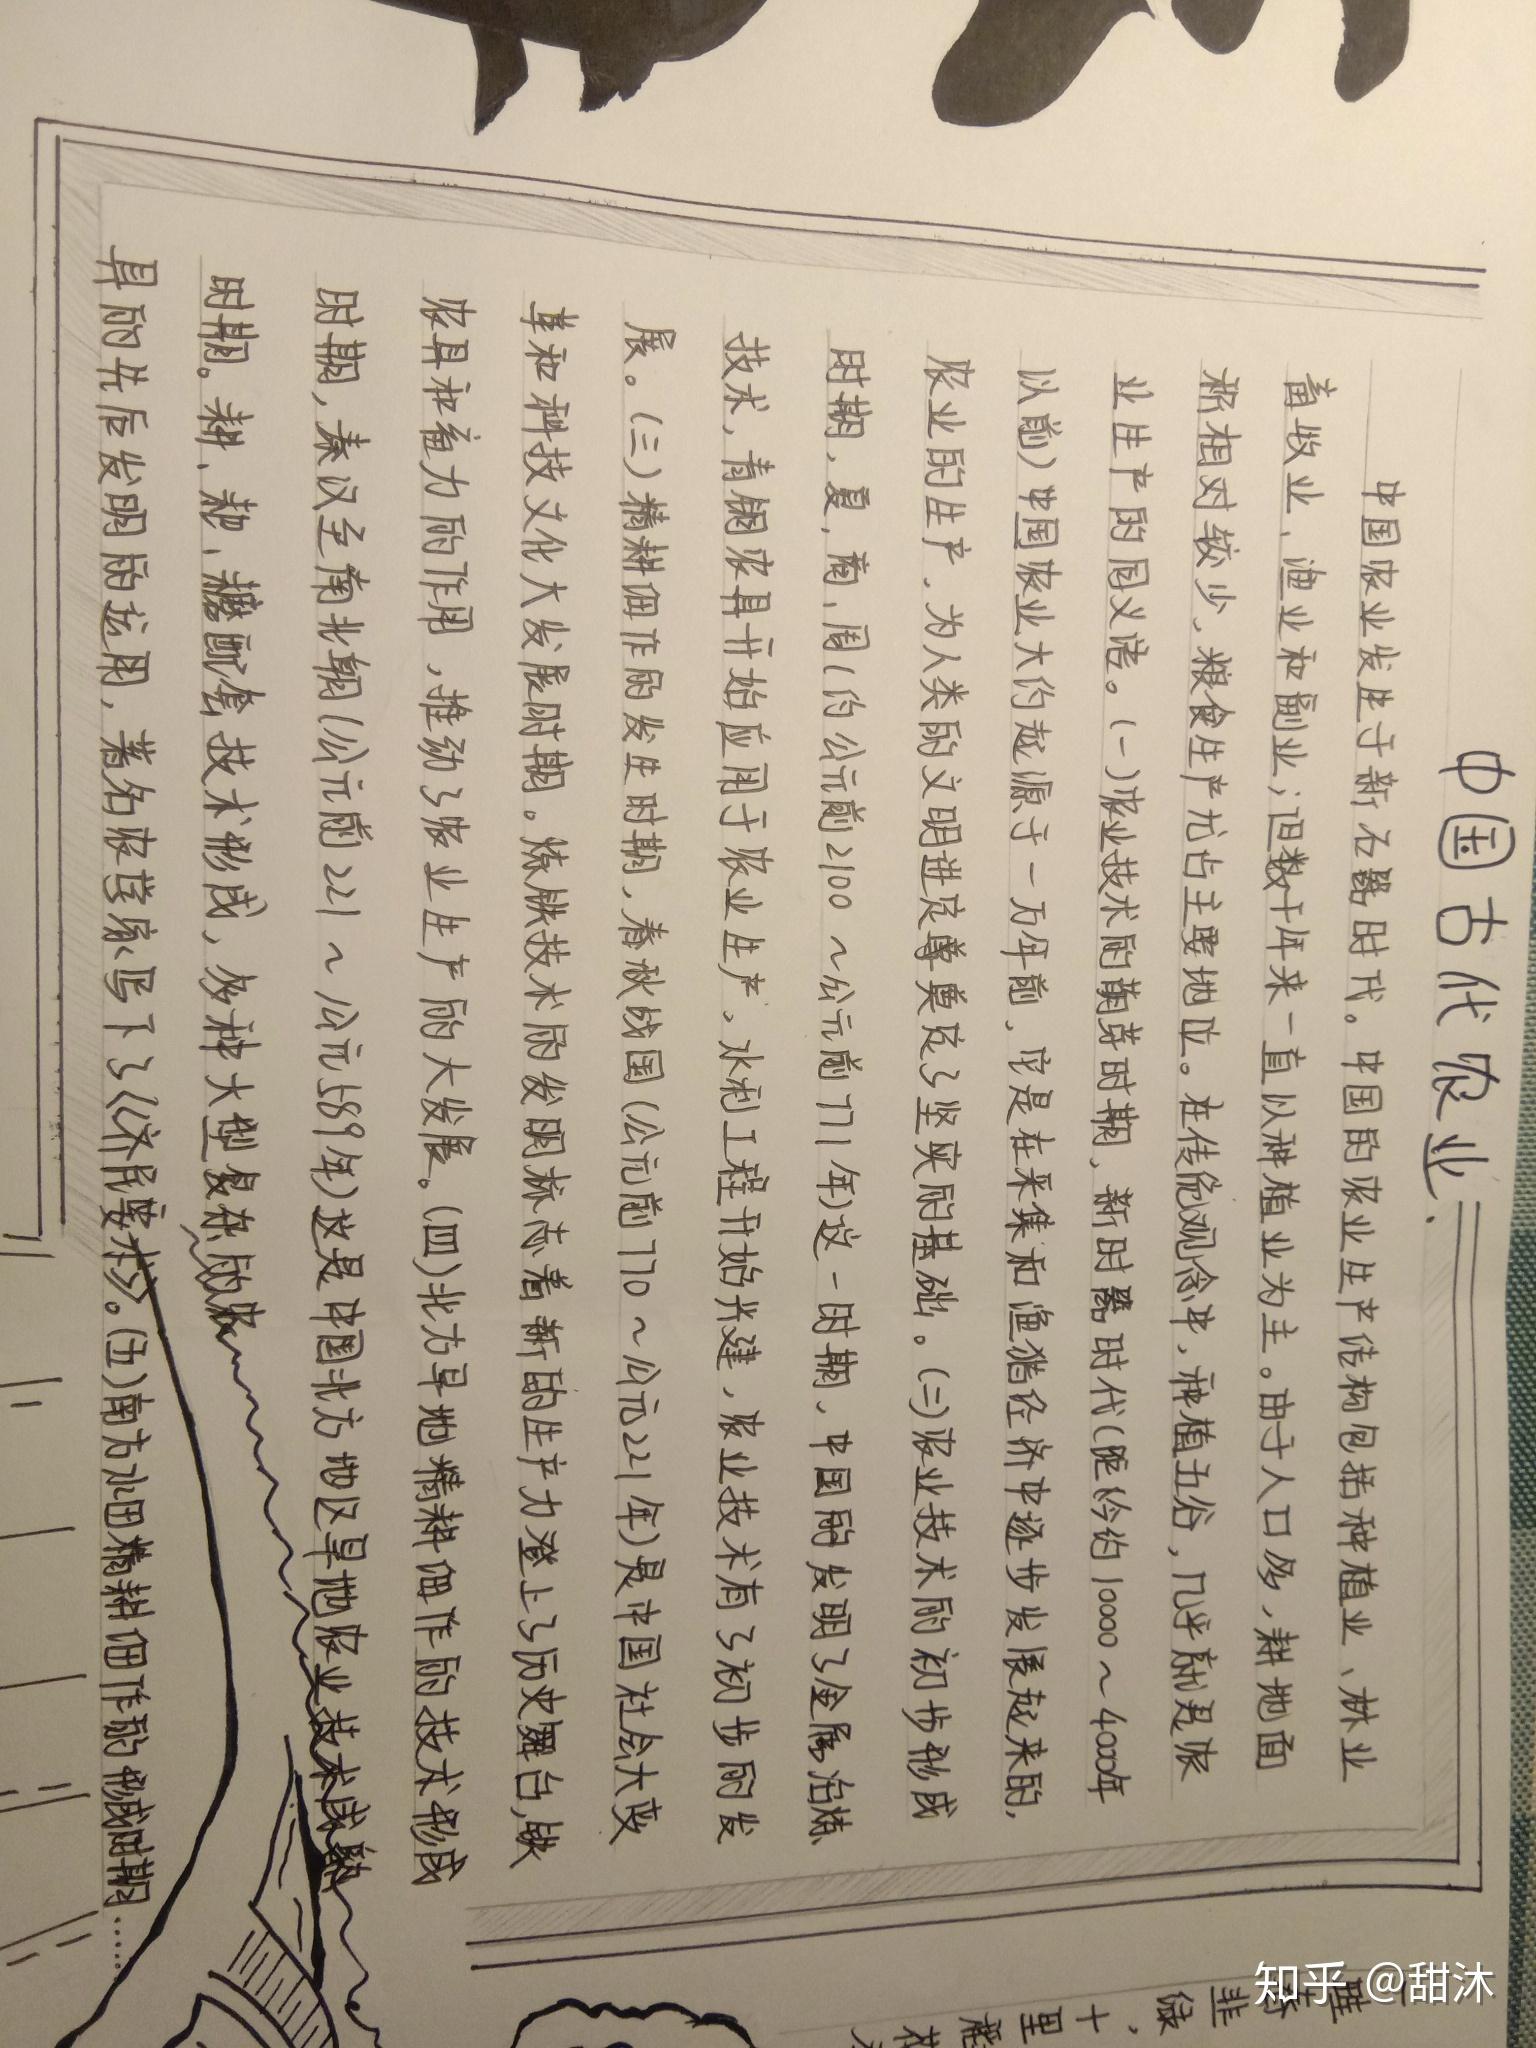 中国古代农业
中国农业发生于新石器时代。中国的农业生产结构包括种植业、林业
畜牧业、渔业和副业；但数千年来一直以种植业为主。由于人口多、耕地面
积相对较少，粮食生产尤占主要地位。在传统观念中，种植五谷，几乎就是农
业生产的同义语。（一）农业技术的萌芽时期、新时器时代（距今约10000～4000年
以前）中国农业大约起源于一万年前、它是在采集和渔猎经济中逐步发展起来的，
农业的生产、为人类的文明进定尊奠定了坚实的基础。（二）农业技术的初步形成
时期，夏，商、周（约公元前2100～公元前771年）这一时期、中国的发明了金属冶炼
技术，青铜农具开始应用于农业生产。水利工程开始兴建、农业技术有了初步的发
展。（三）精耕细作的发生时期，春秋战国（公元前770～公元221年）是中国社会大变
革和科技文化大发展时期。炼铁技术的发明标志着新的生产力登上了历史舞台，铁
农具和畜力的作用，推动了农业生产的大发展。（四）北方旱地精耕细作的技术形成
时期，秦汉至南北朝（公元前221～公元589年）这是中国北方地区旱地农业技术成熟
时期。耕、耙、耱配套技术形成，多种大型复杂的农
具的先后发明的运用，著名农学家写下了《齐民要术》。（五）南方水田精耕细作的形成时期……
绿
十里
知乎 @甜沐